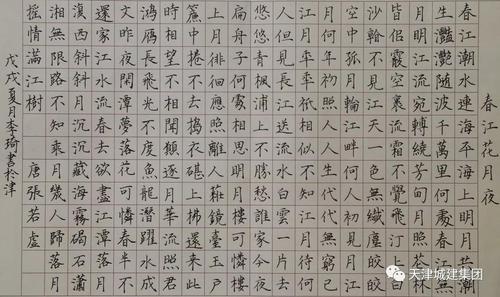 春江花月夜
春江潮水連海平海上明月共潮
生灩灩隨波千萬里何處春江無
月明江流宛轉繞芳甸月照花林
皆似霰空裏流霜不覺飛汀上白
沙看不見江天一色無纖塵皎皎
空中孤月輪江畔何人初見月江
月何年初照人人生代代無窮已
江月年年祇相似不知江月待何
人但見長江送流水白雲一片去
悠悠青楓浦上不勝愁誰家今夜
扁舟子何處相思明月樓可憐樓
上月徘徊應照離人妝鏡臺玉戶
簾中捲不去搗衣碪上拂還來此
時相望不相聞願逐月華流照君
鴻雁長飛光不度魚龍潛躍水成
文昨夜閒潭夢落花可憐春半不
還家江水流春去欲盡江潭落月
復西斜斜月沉沉藏海霧碣石瀟
湘無限路不知乘月幾人歸落月
搖情滿江樹 唐張若虛
戊戌夏月李琦書於津
天津城建集团